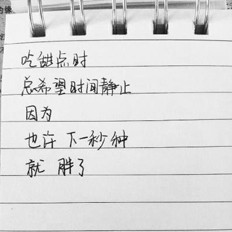 吃甜点时
总希望时间静止
因为
也许下一秒种
就胖了